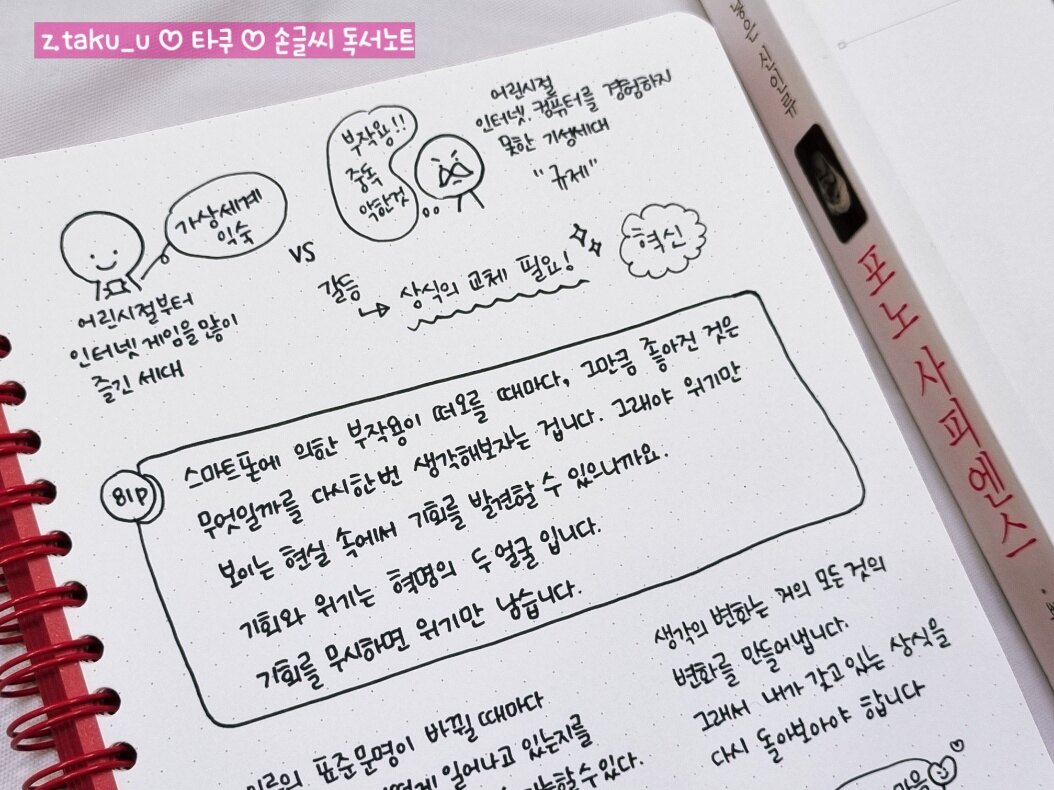 z.taku_u ♡ 타쿠 ♡ 손글씨 독서노트
가상세계
익숙
어린시절부터
인터넷 게임을 많이
즐긴 세대
vs
부작용!!
중독
악한것
어린시절
인터넷. 컴퓨터를 경험하지
못한 기성세대
"규제"
갈등
↳ 상식의 교체 필요!
혁신
81p
스마트폰에 의한 부작용이 떠오를 때마다, 그만큼 좋아진 것은
무엇일까를 다시한번 생각해보자는 겁니다. 그래야 위기만
보이는 현실 속에서 기회를 발견할 수 있으니까요.
기회와 위기는 혁명의 두 얼굴 입니다.
기회를 무시하면 위기만 남습니다.
표준문명이 바뀔 때마다
일어나고 있는지를
생각의 변화는 거의 모든 것의
변화를 만들어냅니다.
그래서 내가 갖고 있는 상식을
다시 돌아보아야 합니다
마음
신인류
포노 사피엔스